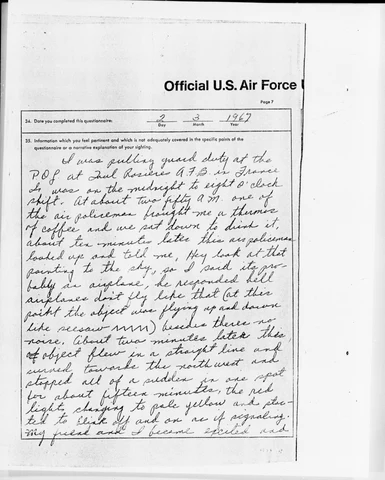 Official U.S. Air Force U
Page 7
34. Date you completed this questionnaire:
2 3 1967
Day Month Year
35. Information which you feel pertinent and which is not adequately covered in the specific points of the
questionnaire or a narrative explanation of your sighting.
I was pulling guard duty at the
P.O.L at Toul Rosieres A.F.B in France
Is was on the midnight to eight O'clock
shift. At about two fifty A.M. one of
the air policeman brought me a thermos
of coffee and we sat down to drink it,
about ten minutes later this air policeman
looked up and told me, Hey look at that
pointing to the sky, so I said its pro-
bably an airplane, he responded hell
airplanes don't fly like that (at this
point the object was flying up and down
like seesaw) besides theres no
noise. About two minutes later this
object flew in a straight line and
curved towards the northwest and
stopped all of a sudden in one spot
for about fifteen minutes, the red
light changing to pale yellow and star-
ted to blink off and on as if signaling.
My friend and I became excited and